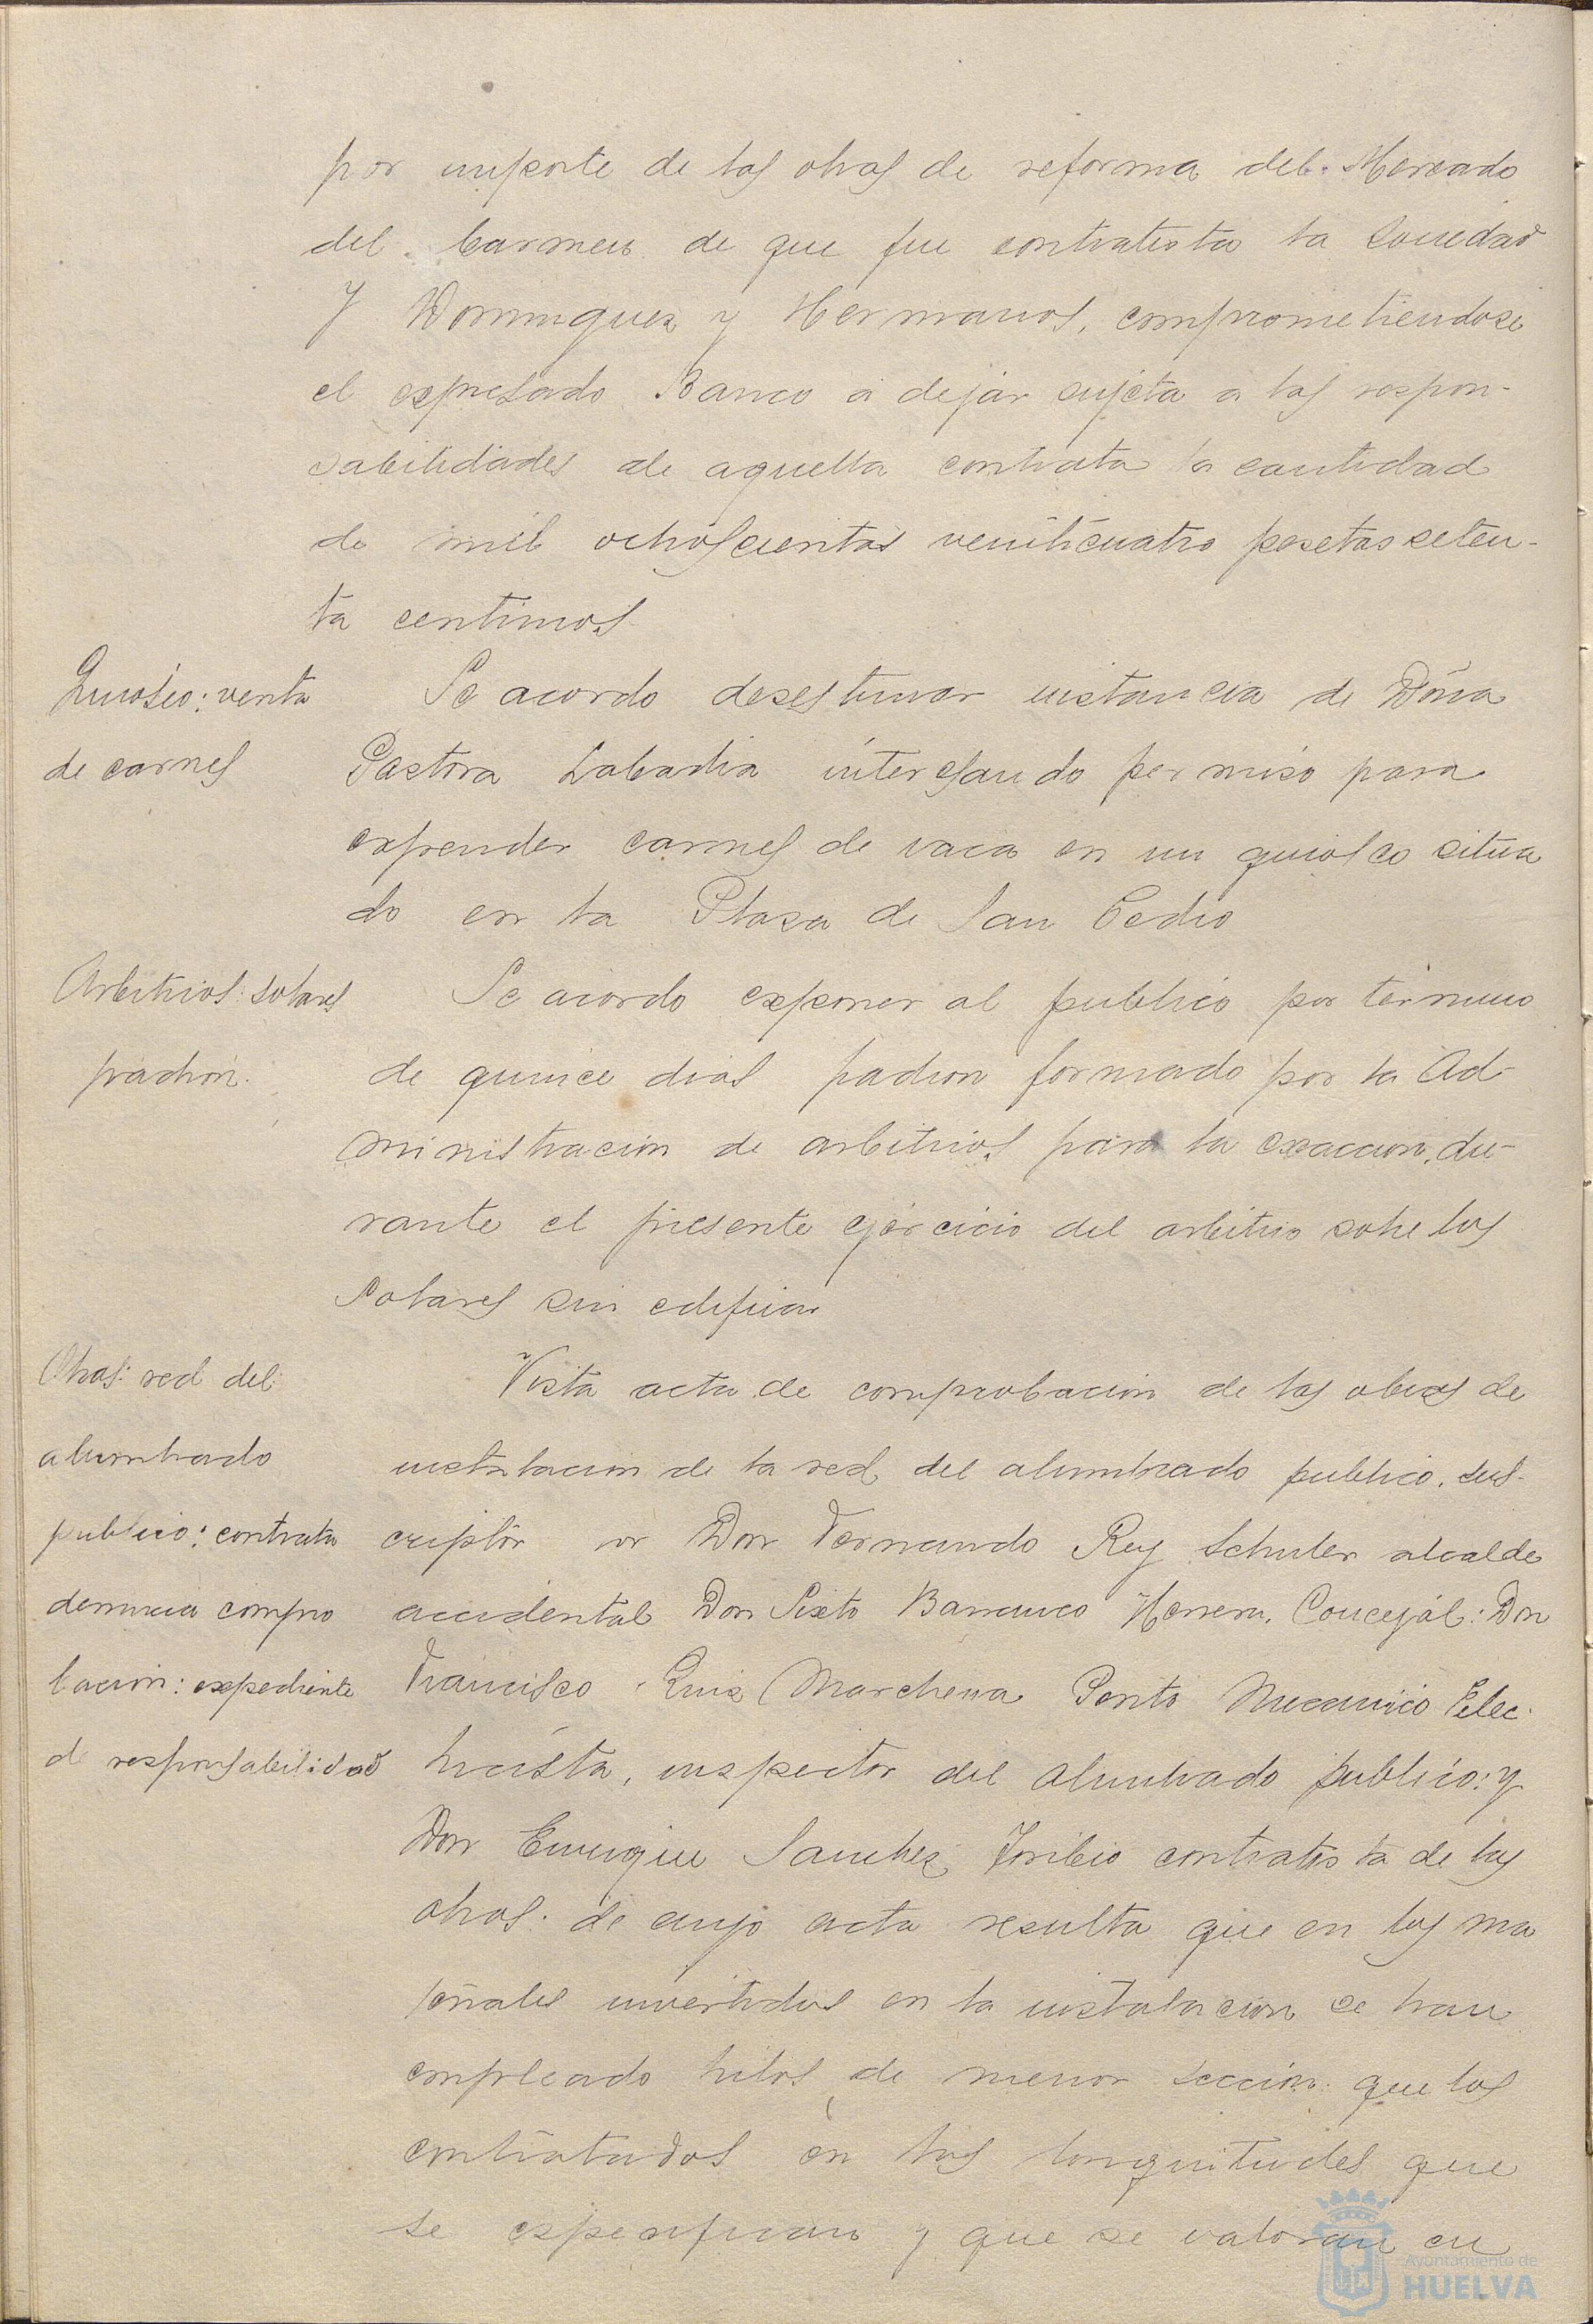 por importe de las obras de reforma del Mercado
del Carmen de que fue contratista la Sociedad
Y Dominguez y Hermanos, comprometiendose
el expresado Banco a dejar sujeta a las respon-
sabilidades de aquella contrata la cantidad
de mil ochoscientas veinticuatro pesetas seten-
ta centimos.
Quiosco: venta
de carnes
Se acordo desestimar instancia de Doña
Pastora Labadia interesando permiso para
expender carnes de vaca en un quiosco situa
do en la Plaza de San Pedro
Arbitrios: solares
padron.
Se acordo exponer al publico por termino
de quince dias padron formado por la Ad-
ministracion de arbitrios para la exaccion, du-
rante el presente ejercicio del arbitrio sobre los
Solares sin edificar
Obras: red del
alumbrado
publico: contrata
denuncia compro
bacion: expediente
de responsabilidad
Vista acta de comprobacion de las obras de
instalacion de la red del alumbrado publico, sus-
cripta por Don Fernando Rey Schuler alcalde
accidental Don Sixto Barranco Herrera, Concejal: Don
Francisco Ruiz Marchena Perito Mecanico Elec-
tricista, inspector del alumbrado publico: y
Don Enrique Sanchez Toribio contratista de las
obras: de cuyo acta resulta que en los ma
teriales invertidos en la instalacion se han
empleado hilos de menor seccion que los
contratados en las longuitudes que
se especifican y que se valoran en
Ayuntamiento de
HUELVA